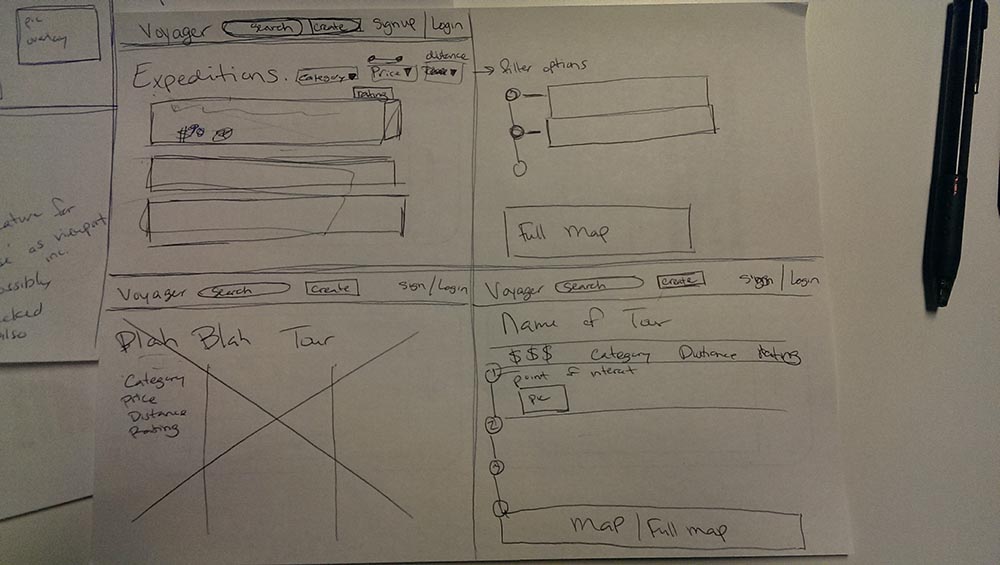 pic
overlay
ature for
as viewport
inc.
ossibly
cked
also
Voyager search create signup | Login
Expeditions. category▼ Price▼ distance ▼
rating
$90
→ filter options
Full map
Voyager search create sign / Login
Blah Blah Tour
Category
Price
Distance
Rating
Voyager search create sign / Login
Name of Tour
$$$ Category Distance Rating
1 point of interest
pic
2
3
map | Full map